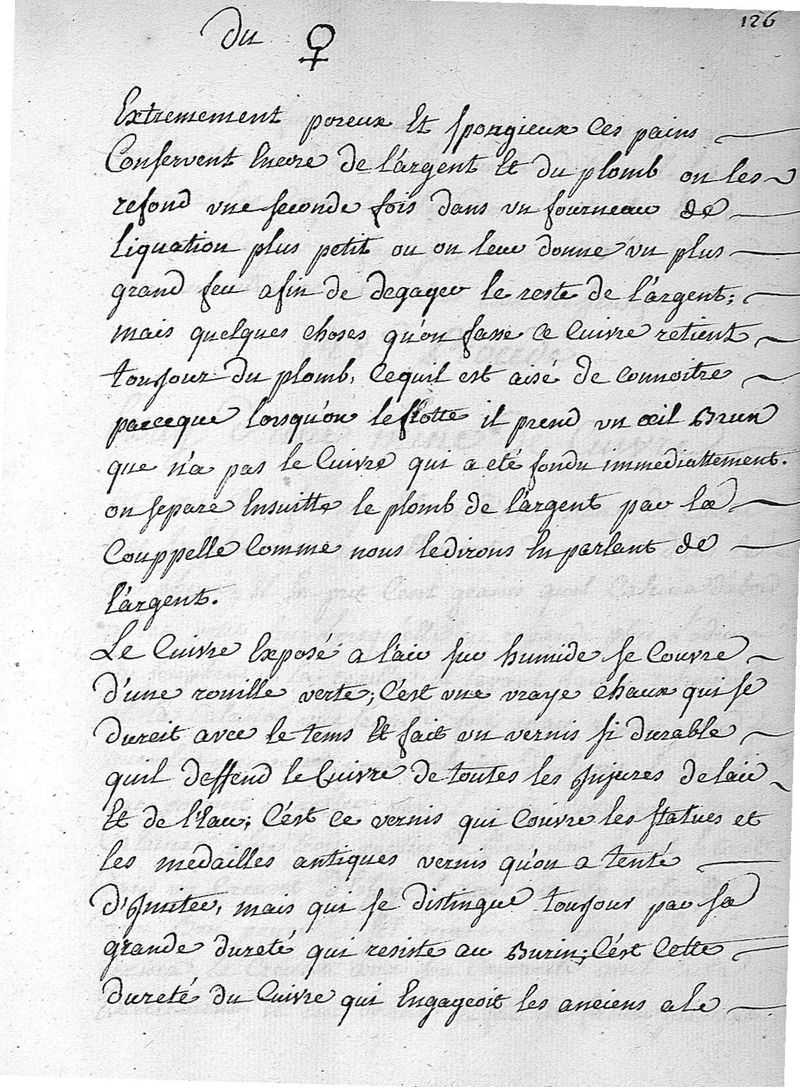 126
Du ♀
Extremement poreux Et spongieux Ces pains
Conservent Encore de l'argent Et du plomb on les
refond vne seconde fois dans vn fourneau de
liquation plus petit ou on leur donne vn plus
grand feu afin de degager le reste de l'argent;
mais quelques choses qu'on fasse ce Cuivre retient
toujour du plomb, Cequil est aisé de connoitre
parceque lorsqu'on le frotte il prend vn œil Brun
que n'a pas le Cuivre qui a eté fondu immediattement.
on separe Ensuitte le plomb de l'argent par la
Couppelle Comme nous ledirons En parlant de
l'argent.
Le Cuivre Exposé a l'air sur humide se Couvre
d'une rouille verte; C'est vne vraye chaux qui se
dureit avec le tems Et fait un vernis si durable
quil deffend le Cuivre de toutes les Injures de l'air
Et de l'Eau; C'est ce vernis qui Couvre les statues et
les medailles antiques vernis qu'on a tenté
d'Imiter, mais qui se distingue toujour par sa
grande dureté qui resiste au Burin; C'est Cette
dureté du Cuivre qui Engageoit les anciens a le